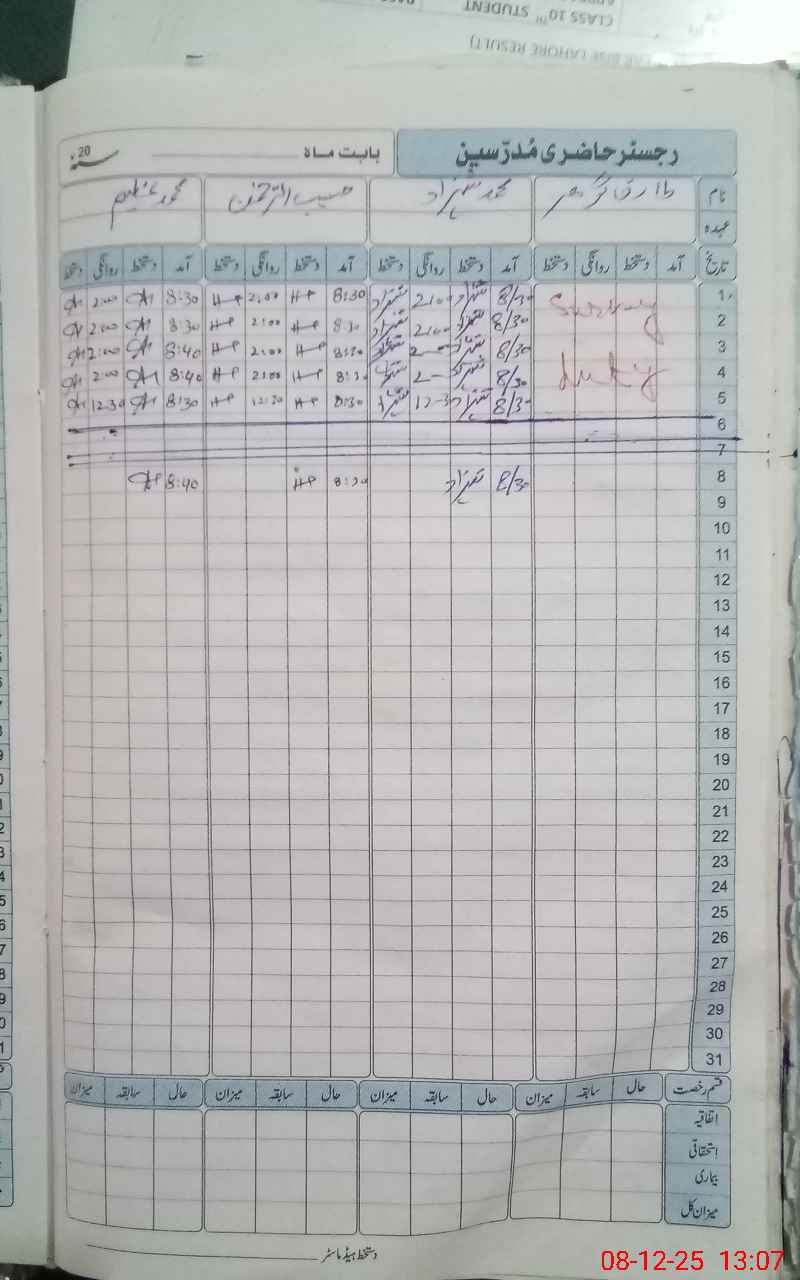 CLASS 10TH STUDENT
LAHORE RESULT)
رجسٹر حاضری مُدرّسین
بابت ماہ 20
نام طارق محمد شہزاد حسیب الرحمٰن محمد عظیم
عہدہ
تاریخ آمد دستخط روانگی دستخط آمد دستخط روانگی دستخط آمد دستخط روانگی دستخط آمد دستخط روانگی دستخط
1 8/30 شہزاد 2:00 شہزاد 8:30 HP 2:00 HP 8:30 2:00
2 8/30 شہزاد 2:00 شہزاد 8:30 HP 2:00 HP 8:30 2:00
3 8/30 شہزاد 2- شہزاد 8:30 HP 2:00 HP 8:40 2:00
4 duty 8/30 شہزاد 2- شہزاد 8:30 HP 2:00 HP 8:40 2:00
5 8/30 شہزاد 12-30 شہزاد 8:30 HP 12:30 HP 8:30 12:30
6
7
8 8/30 شہزاد 8:30 HP 8:40
9
10
11
12
13
14
15
16
17
18
19
20
21
22
23
24
25
26
27
28
29
30
31
قسم رخصت حال سابقہ میزان حال سابقہ میزان حال سابقہ میزان حال سابقہ میزان
اتفاقیہ
استحقاقی
بیماری
میزان کل
دستخط ہیڈ ماسٹر
08-12-25 13:07